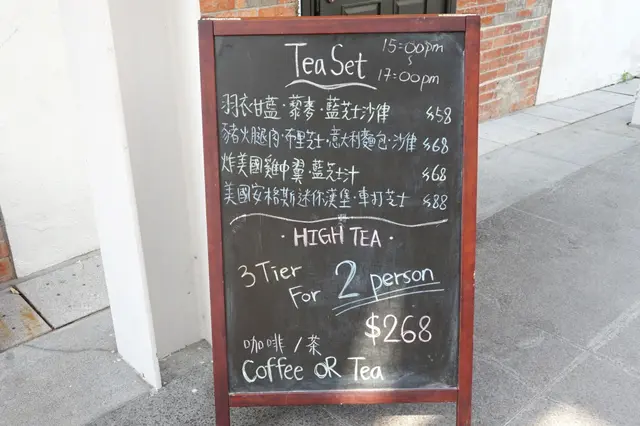 Tea Set
15:00pm
~
17:00pm
羽衣甘藍·藜麥·藍芝士沙律 $58
豬火腿肉·布里芝士·意大利麵包·沙律 $68
炸美國雞中翼·藍芝士汁 $68
美國安格斯迷你漢堡·車打芝士 $88
· HIGH TEA ·
3 Tier
For 2 person
$268
咖啡 / 茶
Coffee OR Tea